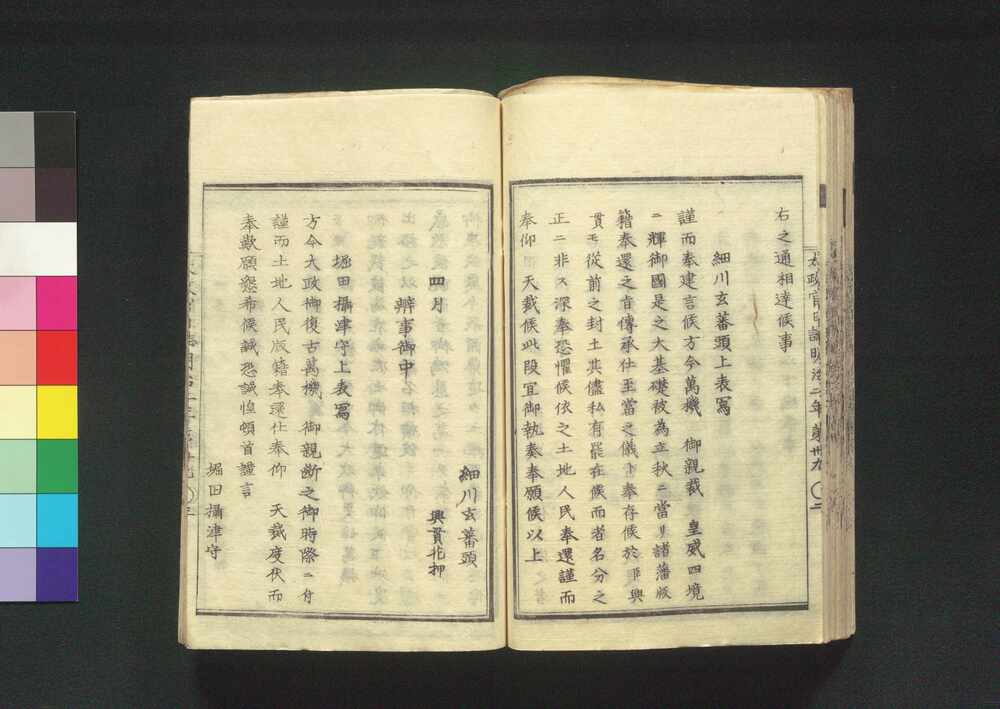 太政官日誌明治二年第卅九
二
右之通相達候事
細川玄蕃頭上表寫
謹而奉建言候方今萬機 御親裁 皇威四境
ニ輝御國是之大基礎被為立秋ニ當リ諸藩版
籍奉還之旨傳承仕至當之儀ト奉存候於 興
貫モ從前之封土其儘私有罷在候而者名分之
正ニ非ス深奉恐懼候依之土地人民奉還謹而
奉仰 天裁候此段宜御執奏奉願候以上
細川玄蕃頭
四月 興貫花押
辨事御中
堀田攝津守上表寫
方今大政御復古萬機 御親断之御時際ニ付
謹而土地人民版籍奉還仕奉仰 天裁度伏而
奉歎願懇希候誠恐誠惶頓首謹言
堀田攝津守